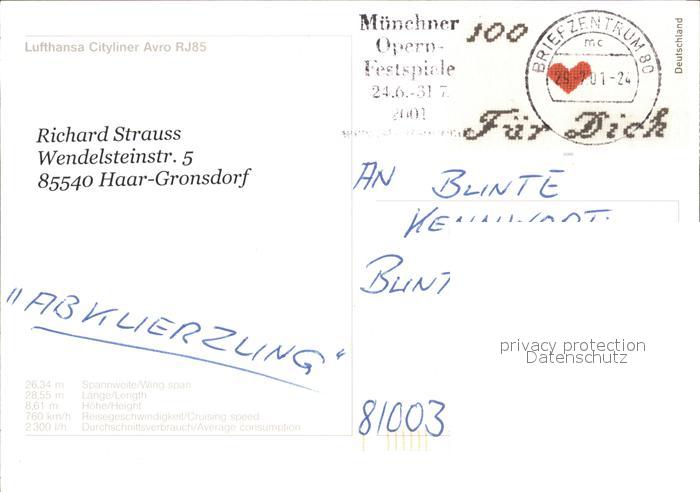 Lufthansa Cityliner Avro RJ85
Richard Strauss
Wendelsteinstr. 5
85540 Haar-Gronsdorf
"ABKUERZUNG"
26,34 m Spannweite/Wing span
28,55 m Länge/Length
8,61 m Höhe/Height
760 km/h Reisegeschwindigkeit/Cruising speed
2 300 l/h Durchschnittsverbrauch/Average consumption
Münchner
Opern-
Festspiele
24.6.-31.7.
2001
100
Für Dich
Deutschland
BRIEFZENTRUM 80
mc
29.-7.01-24
AN BUNTE
KENNWORT:
BUNT
81003
privacy protection
Datenschutz